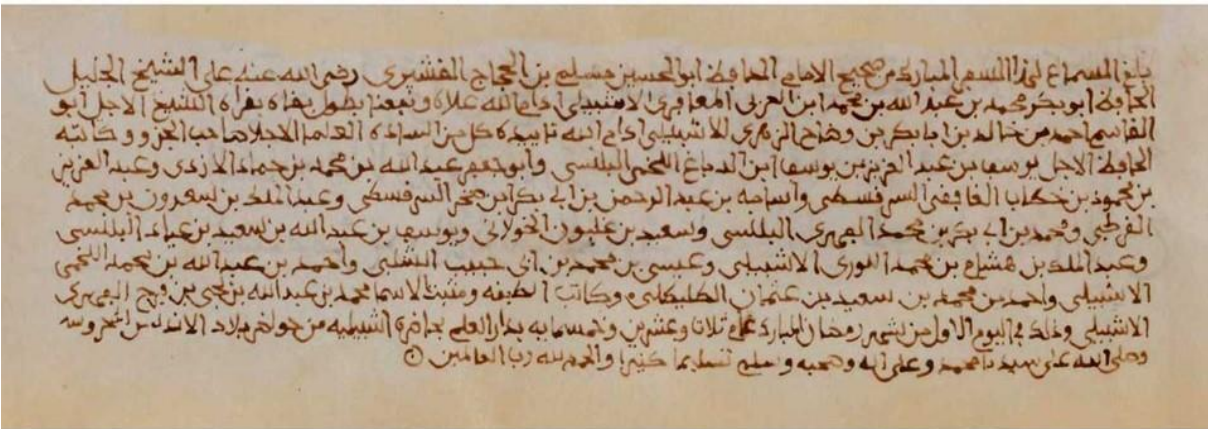 بلغ السماع لهذا السفر المبارك من صحيح الامام الحافظ ابو الحسين مسلم بن الحجاج القشيري رضي الله عنه على الشيخ الجليل
الحافظ ابو بكر محمد بن عبد الله بن محمد ابن العربي المعافري الاشبيلي ادام الله علاه ونفعنا بطول بقاه بقراة الشيخ الاجل ابو
القاسم احمد من خالد بن ابا بكر بن وضاح الزهري الاشبيلي ادام الله تاييده كل من السادة العلما الاجلا صاحب الجزو وكاتبه
الحافظ الاجل يوسف بن عبد العزيز بن يوسف ابن الدباغ اللخمي البلنسي وابو جعفر عبد الله بن محمد بن حماد الازدي وعبد العزيز
بن محمود بن خطاب الغافقي السرقسطي واسامه بن عبد الرحمن بن ابي بكر ابن صخر السرقسطي وعبد الملك بن سعدون بن محمد
القرطبي ومحمد بن ابي بكر بن محمد الفهري البلنسي وسعيد بن غلبون الخولاني ويوسف بن عبد الله بن سعيد بن عياد البلنسي
وعبد الملك بن هشام بن محمد الاشبيلي وعيسى بن محمد بن ابي حبيب الشلبي واحمد بن عبد الله بن محمد اللخمي
الاشبيلي واحمد من محمد بن سعيد بن عثمان الطليطلي وكاتب الطبقه ومثبت الاسما محمد بن عبد الله بن يحيى بن فرج الفهري
الاشبيلي وذلك في اليوم الاول من شهر رمضان المبارك عام ثلاثا وعشرين وخمسمايه بدار العلم بحاضرة اشبيليه من حواضر بلاد الاندلس المحروسه
وصلى الله على سيدنا محمد وعلى اله وصحبه وسلم تسليما كثيرا والحمد لله رب العالمين